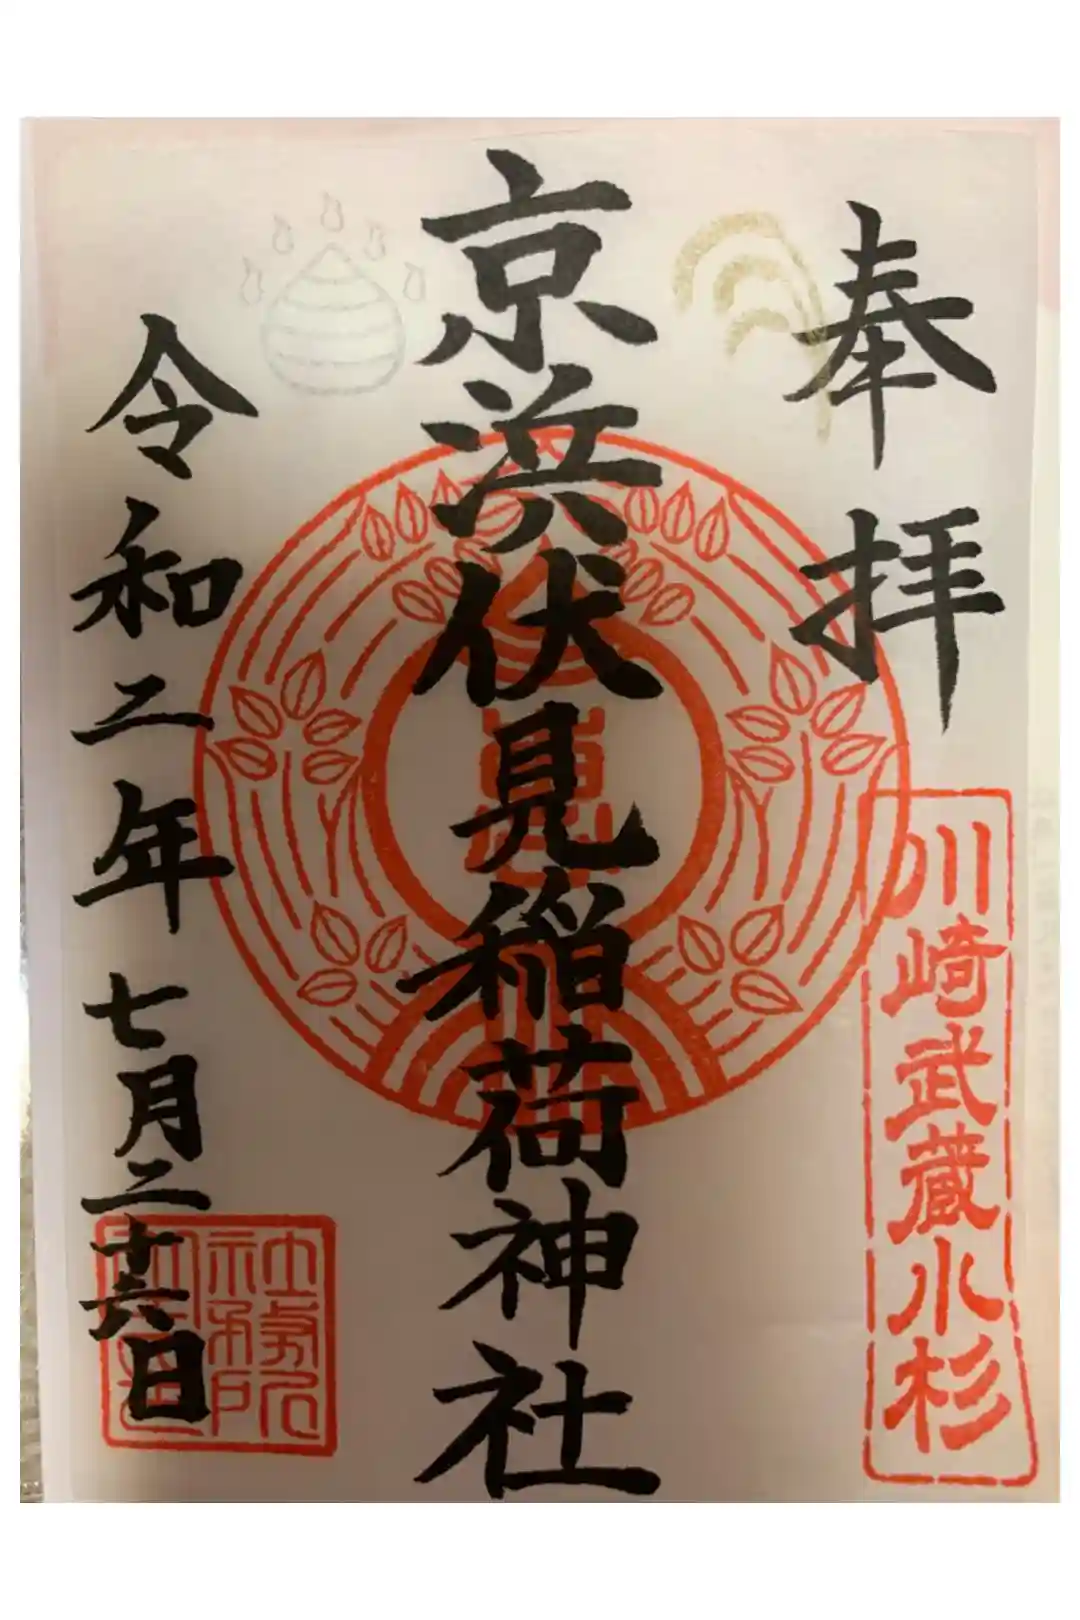 奉拝
川崎武蔵小杉
京浜伏見稲荷神社
令和二年七月二十六日
社務所